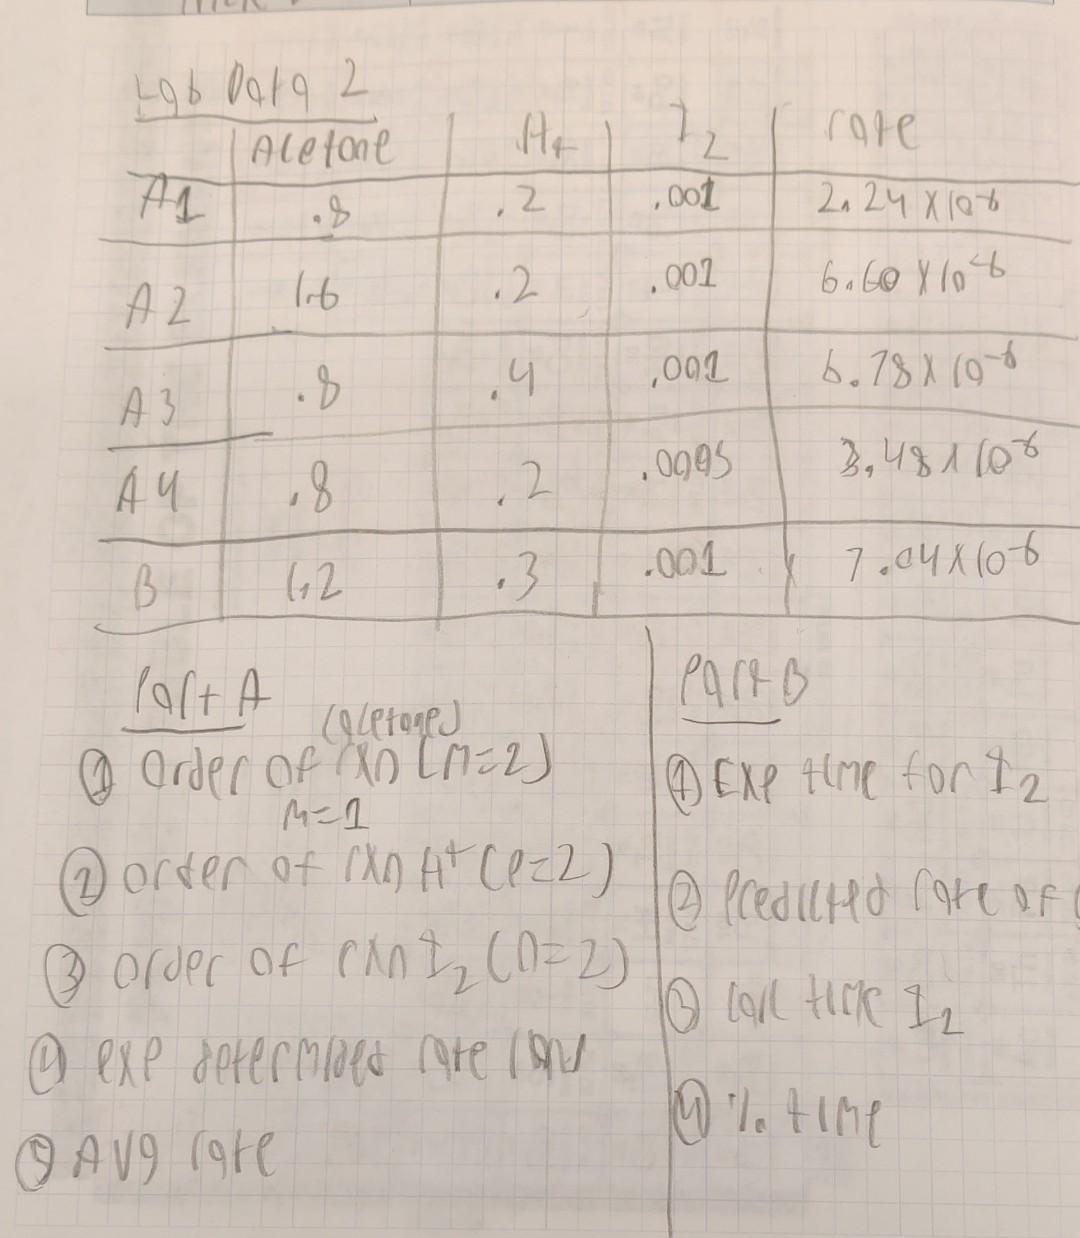 Lab Data 2
Acetone H+ I2 rate
A1 .8 .2 .001 2.24 x 10-6
A2 1.6 .2 .001 6.60 x 10-6
A3 .8 .4 .001 6.78 x 10-6
A4 .8 .2 .0005 3.48 x 10-6
B 1.2 .3 .001 7.04 x 10-6
Part A
(acetone)
① Order of rxn (m=2)
m=1
② order of rxn H+ (p=2)
③ order of rxn I2 (n=2)
④ exp determined rate law
⑤ Avg rate
Part B
① Exp time for I2
② Predicted rate of
③ calc time I2
④ % time